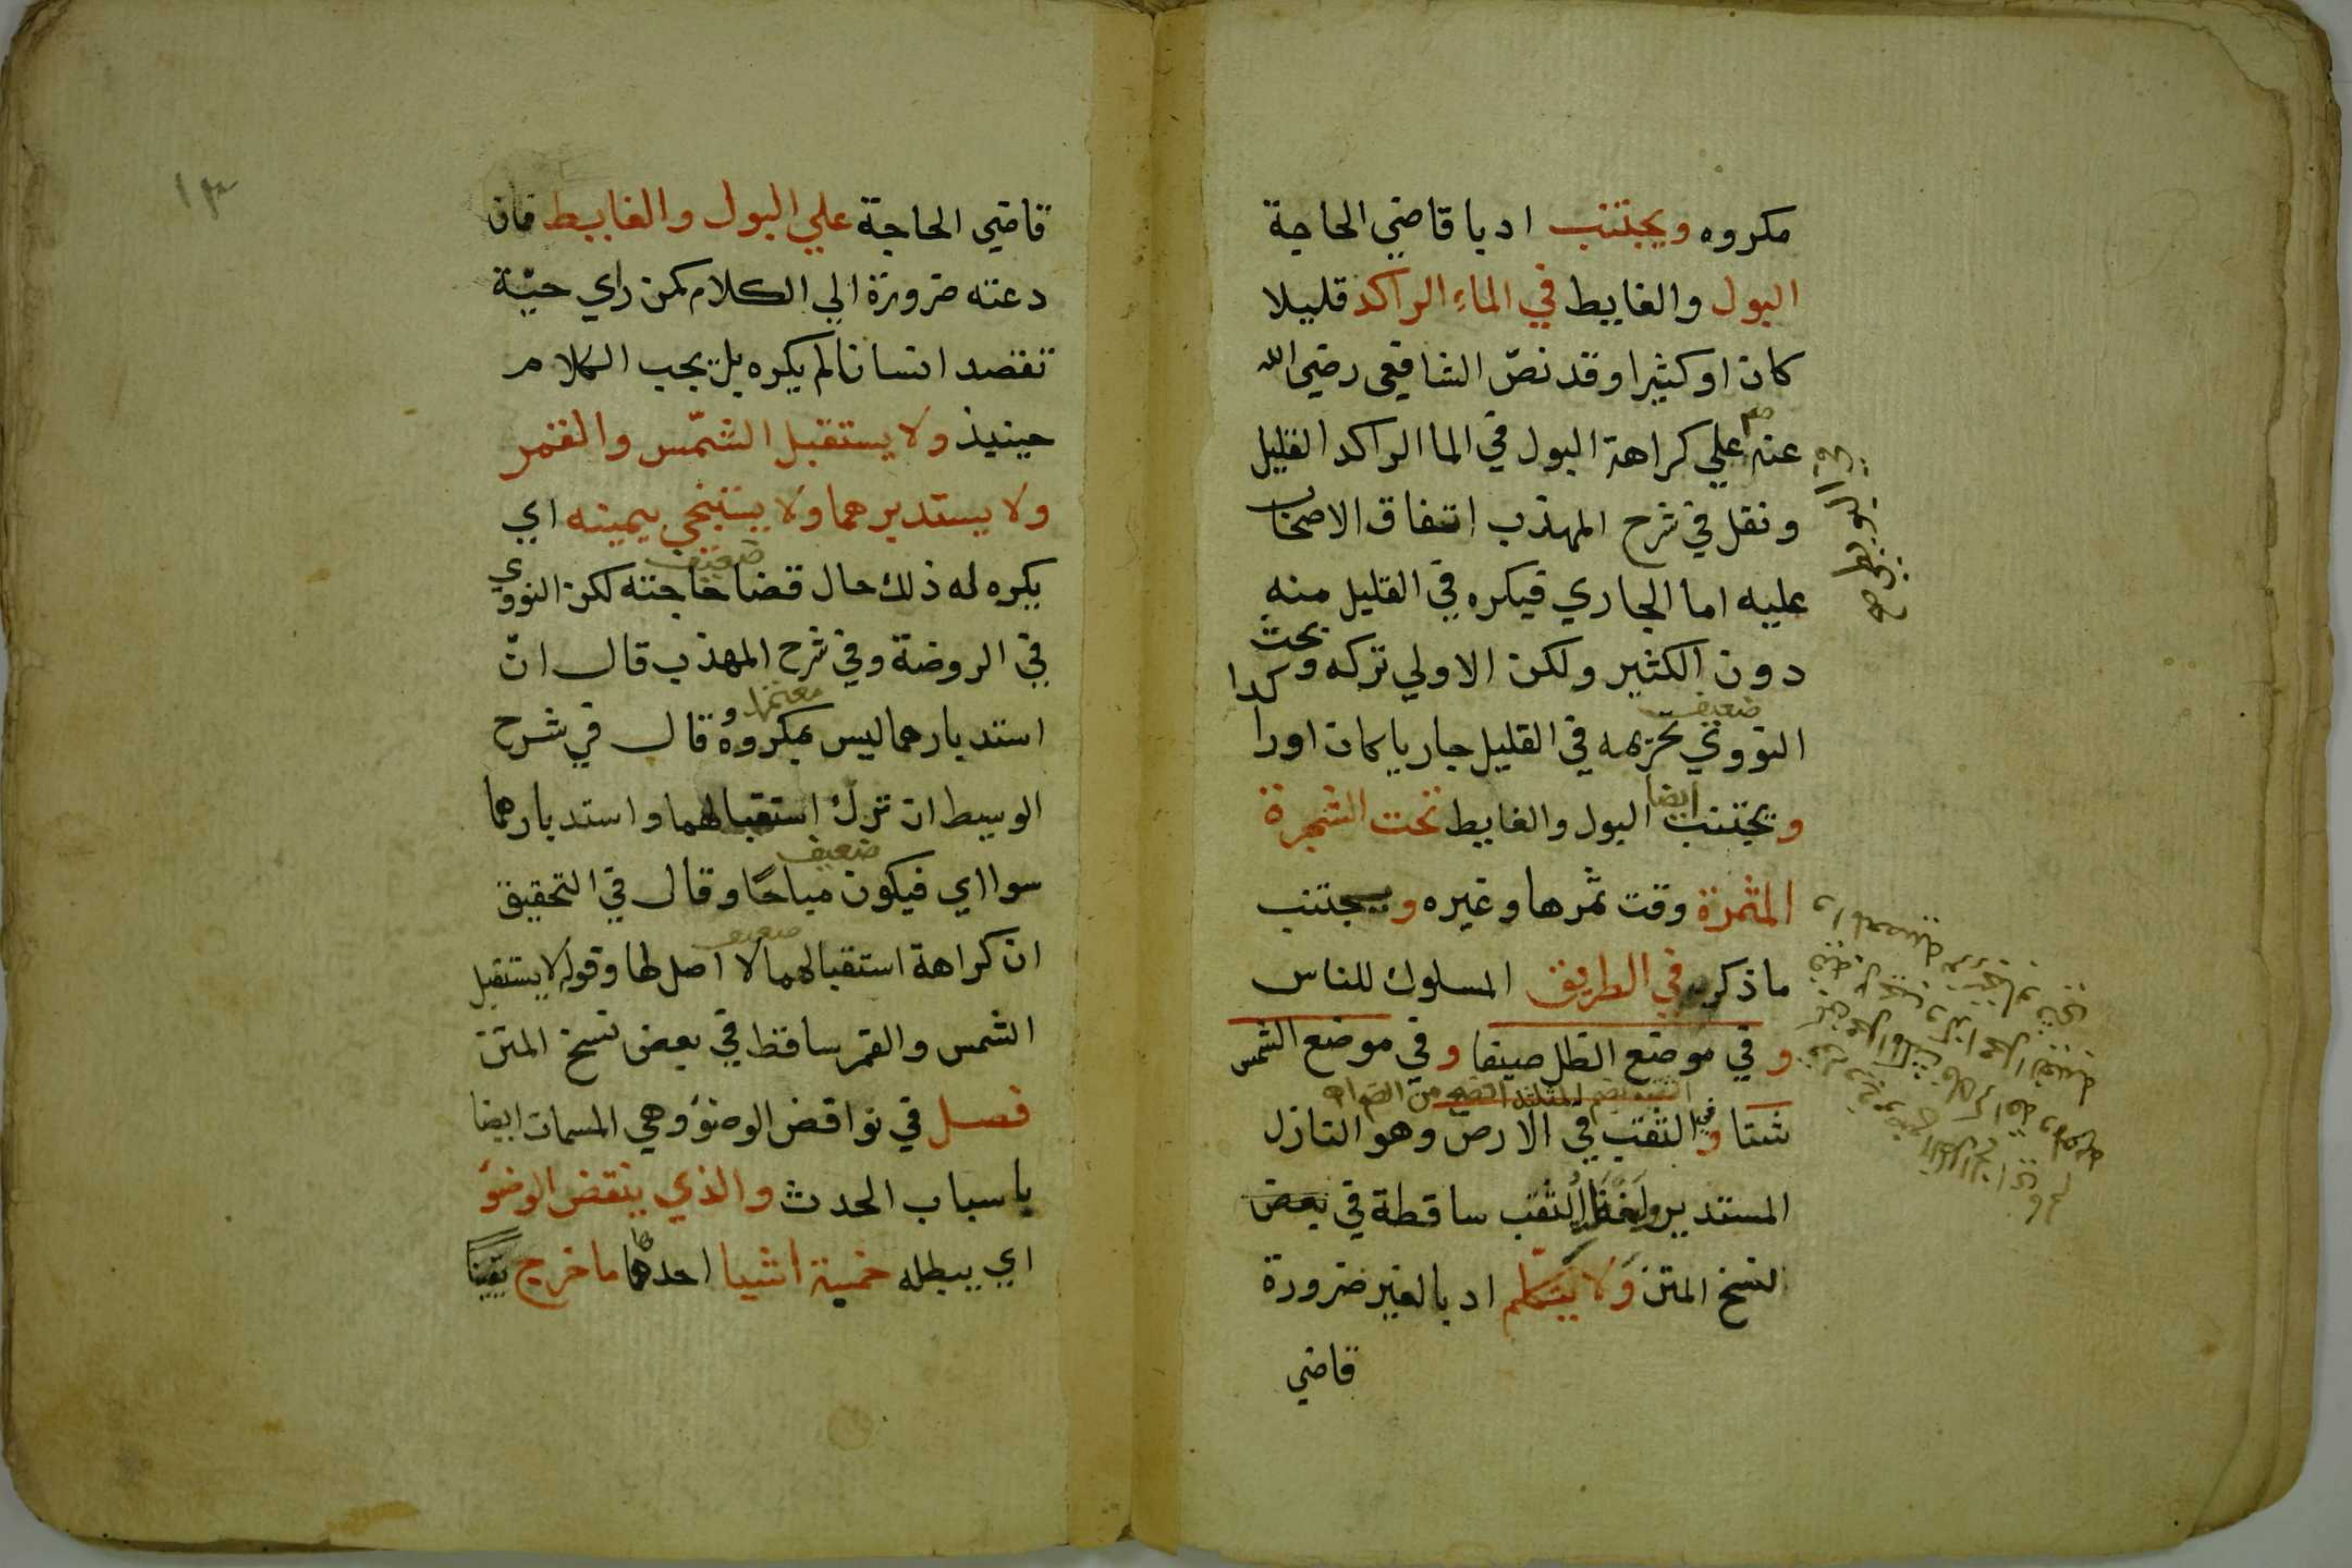 مكروه ويجتنب ادبا قاضي الحاجة
البول والغايط في الماء الراكد قليلا
كان او كثيرا وقد نصّ الشافعي رضي الله
عنه علي كراهة البول في الما الراكد القليل
ونقل في شرح المهذب اتفاق الاصحاب
عليه اما الجاري فيكره في القليل منه
دون الكثير ولكن الاولي تركه وبحث
النووي تحريمه في القليل جاريا كان اورا كدا
ضعيف
ويجتنب ايضا البول والغايط تحت الشجرة
المثمرة وقت ثمرها وغيره ويجتنب
ما ذكر في الطريق المسلوك للناس
وفي موضع الظل صيفا وفي موضع الشمس
شتا وفي الثقب في الارض وهو النازل
المستدير ولفظ الثقب ساقطة في بعض
النسخ المتن ولا يتكلم ادبا لغير ضرورة
قاضي
١٣
قاضي الحاجة علي البول والغايط فان
دعته ضرورة الي الكلام كمن راي حيّة
تقصد انسانا لم يكره بل يجب الكلام
حينيذ ولا يستقبل الشمس والقمر
ولا يستدبرهما ولا يستنجي بيمينه اي
ضعيف
يكره له ذلك حال قضا حاجته لكن النووي
في الروضة وفي شرح المهذب قال انّ
معتمد
استدبارهما ليس بمكروه وقال في شرح
الوسيط ان ترك استقبالهما واستدبارهما
ضعيف
سوا اي فيكون مباحًا وقال في التحقيق
ضعيف
ان كراهة استقبالهما لا اصل لها وقوله لا يستقبل
الشمس والقمر ساقط في بعض نسخ المتن
فصل في نواقض الوضؤ وهي المسمات ايضا
باسباب الحدث والذي ينقض الوضؤ
اي يبطله خمسة اشيا احدها ما خرج